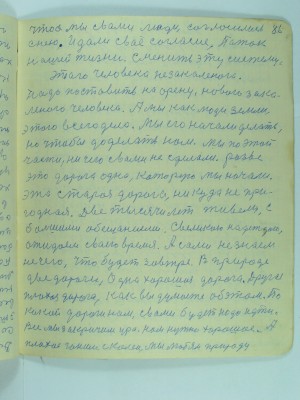 чтоб мы с вами люди согласились 86
с нею. И дали своё согласие, Потом
нашей жизни. Сменить эту систему.
Этаго человека незакаленого.
Надо поставить на арену, нового зака-
леного человека. А мы как люди земли
этого всего дела. Мы его начали делать,
но чтобы доделать нам. Мы по этой
части, ничего с вами не сделали. Разве
это дорога одна, которую мы начали.
Эта старая дорога, никуда не при-
годная. Две тысячи лет живем, с
большими обещаниями. С великою надеждою,
ожидали свами время. А сами не знаем
нечего, что будет завтра. В природе
две дороги, Одна хорошая дорога. Другая
плохая дорога, как вы думаете об этом. По
какой дороги нам, свами будет надо идти.
Все мы закричим ура. Нам нужно хорошое. А
плохое гоним смела, мы мол тя природу